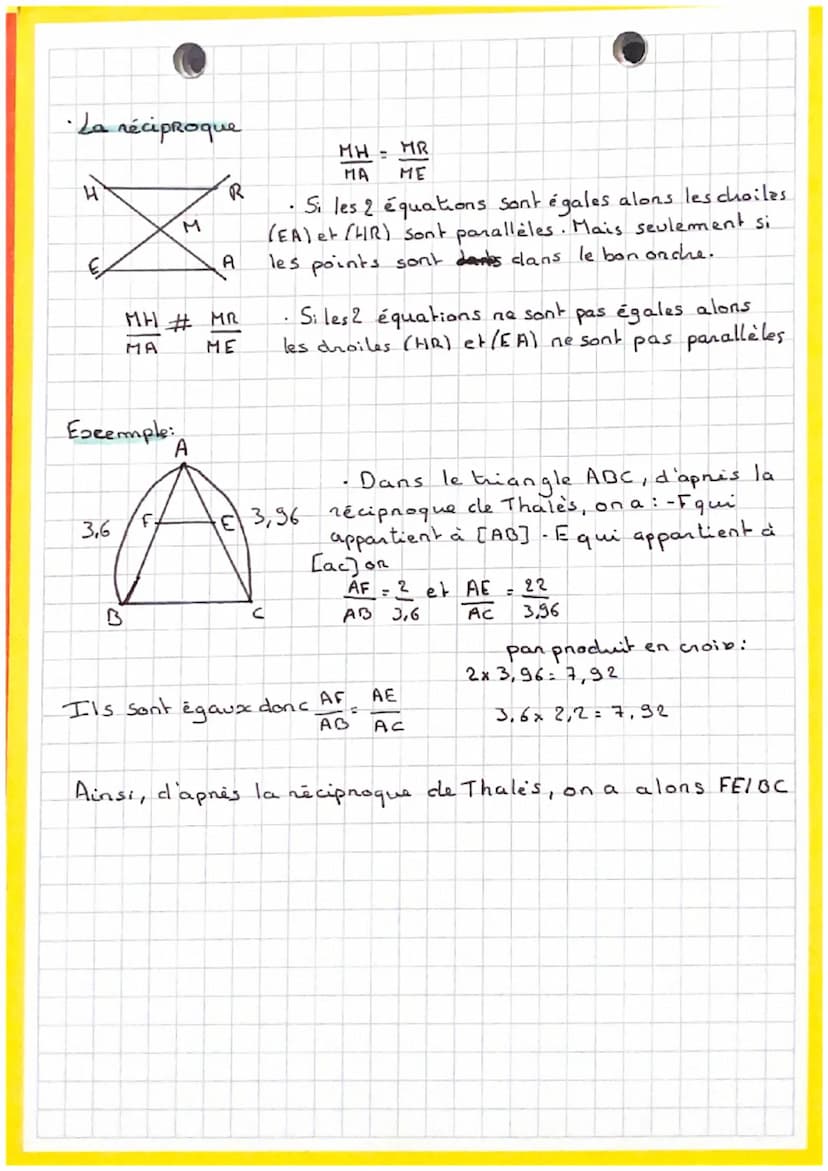 · La réciproque
MH = MR
MA ME
H R
M
E A
· Si les 2 équations sont égales alors les droites
(EA) et (HR) sont parallèles. Mais seulement si
les points sont dans le bon ordre.
MH ≠ MR
MA ME
· Si les 2 équations ne sont pas égales alors
les droites (HR) et (EA) ne sont pas parallèles
Exemple:
A
3,6 F E 3,96
B C
· Dans le triangle ABC, d'après la
réciproque de Thalès, on a : - F qui
appartient à [AB] · E qui appartient à
[ac] or
AF = 2 et AE = 22
AB 3,6 AC 3,96
par produit en croix:
2x 3,96 = 7,92
3,6 x 2,2 = 7,92
Ils sont égaux donc AF = AE
AB AC
Ainsi, d'après la réciproque de Thalès, on a alors FE/BC